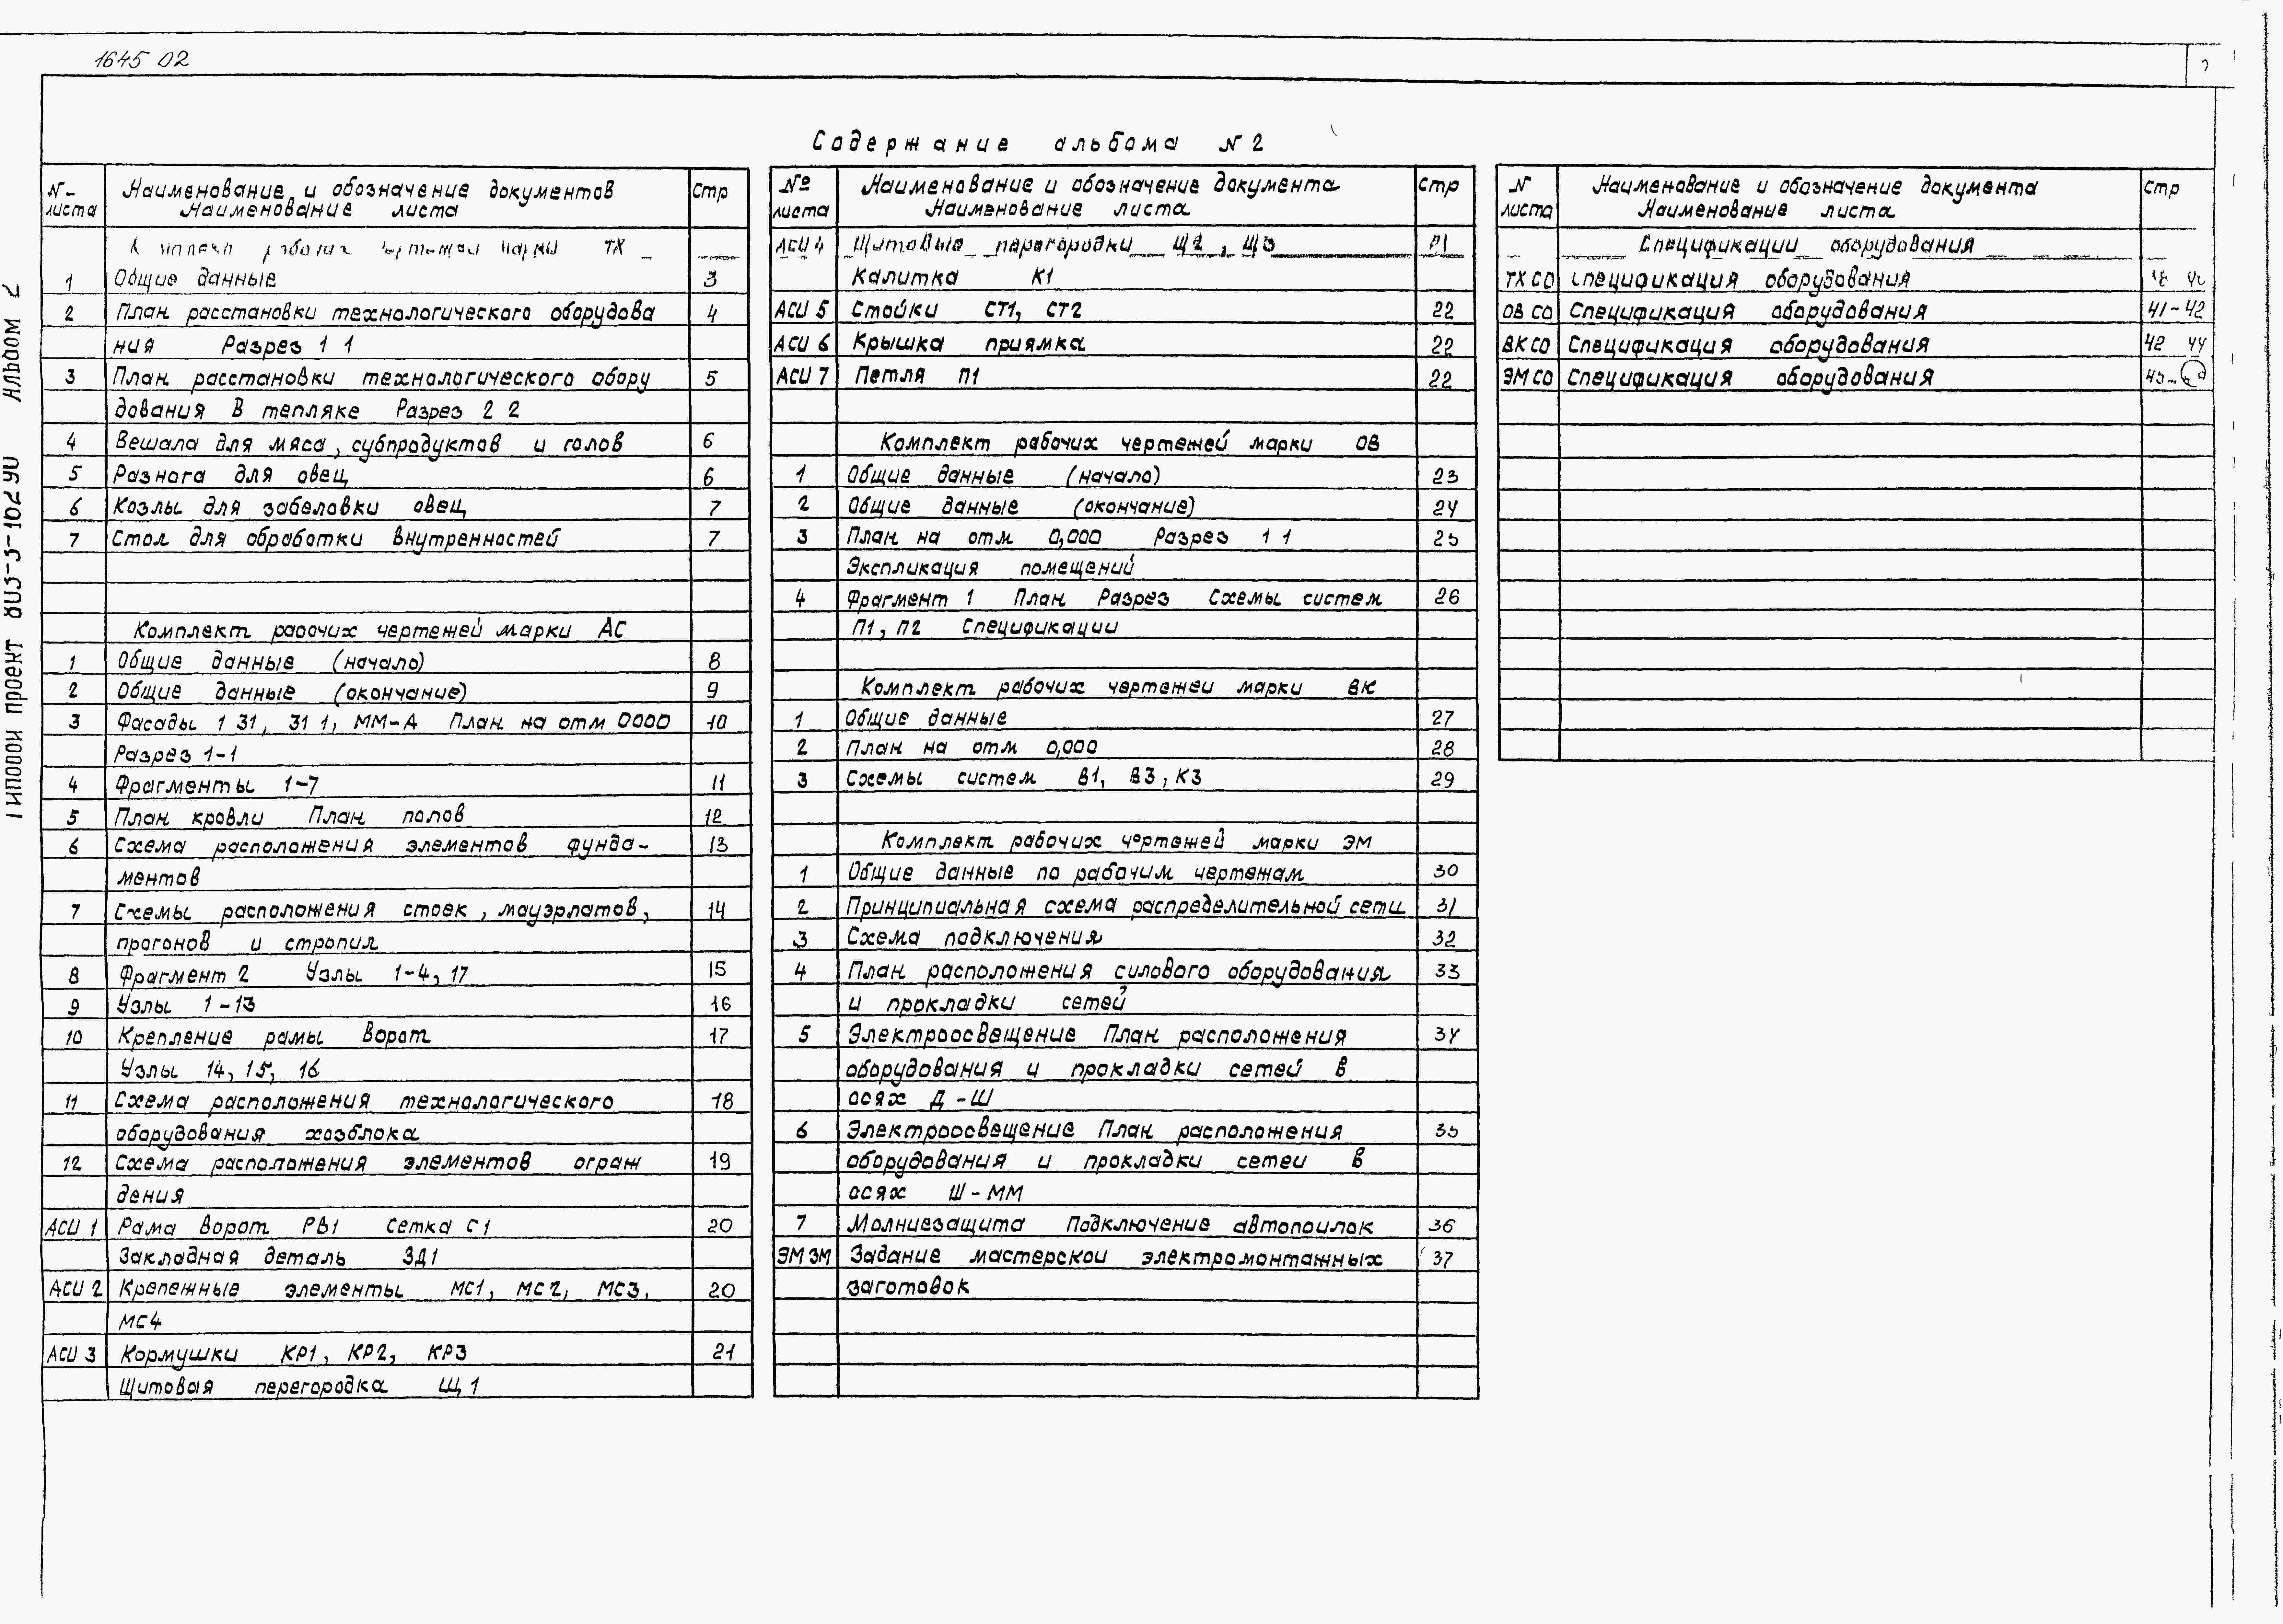 1645 02
Содержание альбома N 2
N-
листа
Наименование и обозначение документов
Наименование листа
Стр
рабочих чертежей марки ТХ
1 Общие данные 3
2 План расстановки технологического оборудова 4
ния Разрез 1 1
3 План расстановки технологического обору 5
дования в тепляке Разрез 2 2
4 Вешала для мяса, субпродуктов и голов 6
5 Разнога для овец 6
6 Козлы для забеловки овец 7
7 Стол для обработки внутренностей 7
Комплект рабочих чертежей марки АС
1 Общие данные (начало) 8
2 Общие данные (окончание) 9
3 Фасады 1 31, 31 1, ММ-А План на отм 0000 10
Разрез 1-1
4 Фрагменты 1-7 11
5 План кровли План полов 12
6 Схема расположения элементов фунда- 13
ментов
7 Схемы расположения стоек, мауэрлатов, 14
прогонов и стропил
8 Фрагмент 2 Узлы 1-4, 17 15
9 Узлы 1-13 16
10 Крепление рамы ворот 17
Узлы 14, 15, 16
11 Схема расположения технологического 18
оборудования хозблока
12 Схема расположения элементов ограж 19
дения
АСИ 1 Рама ворот РВ1 Сетка С1 20
Закладная деталь ЗД1
АСИ 2 Крепежные элементы МС1, МС2, МС3, 20
МС4
АСИ 3 Кормушки КР1, КР2, КР3 21
Щитовая перегородка Щ1
№
листа
Наименование и обозначение документа
Наименование листа
Стр
АСИ 4 Щитовые перегородки Щ2, Щ3 21
Калитка К1
АСИ 5 Стойки СТ1, СТ2 22
АСИ 6 Крышка приямка 22
АСИ 7 Петля П1 22
Комплект рабочих чертежей марки ОВ
1 Общие данные (начало) 23
2 Общие данные (окончание) 24
3 План на отм 0,000 Разрез 1 1 25
Экспликация помещений
4 Фрагмент 1 План Разрез Схемы систем 26
П1, П2 Спецификации
Комплект рабочих чертежеи марки ВК
1 Общие данные 27
2 План на отм 0,000 28
3 Схемы систем В1, В3, К3 29
Комплект рабочих чертежей марки ЭМ
1 Общие данные по рабочим чертежам 30
2 Принципиальная схема распределительной сети 31
3 Схема подключения 32
4 План расположения силового оборудования 33
и прокладки сетей
5 Электроосвещение План расположения 34
оборудования и прокладки сетей в
осях Д-Ш
6 Электроосвещение План расположения 35
оборудования и прокладки сетеи в
осях Ш-ММ
7 Молниезащита Подключение автопоилок 36
ЭМ ЭМ Задание мастерскои электромонтажных 37
заготовок
N
листа
Наименование и обозначение документа
Наименование листа
Стр
Спецификации оборудования
ТХ СО Спецификация оборудования
ОВ СО Спецификация оборудования 41-42
ВК СО Спецификация оборудования 42 44
ЭМ СО Спецификация оборудования
Типовой проект 803-3-102 90 Альбом 2